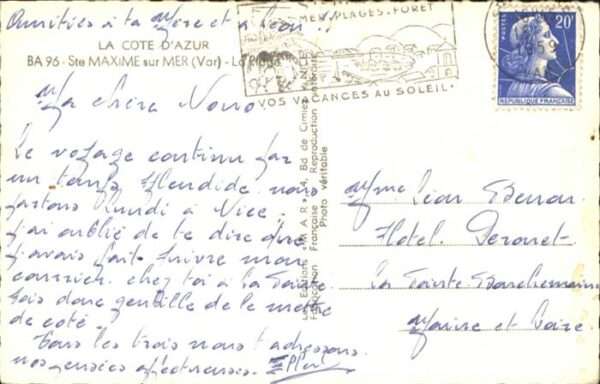 Amitiés à ta Mère et à Léon.
LA COTE D'AZUR
BA 96 - Ste MAXIME sur MER (Var) - La Plage
MER, PLAGES, FORET
VOS VACANCES AU SOLEIL
1959
POSTES
20F
REPUBLIQUE FRANÇAISE
Ma chère Nono
Le voyage continu par
un temps splendide. nous
partons Lundi à Nice.
j'ai oublié de te dire que
j'avais fait suivre mon
courrier chez toi à la Sainte
sois donc gentille de le mettre
de coté.
Tous les trois nous t'adressons
nos pensées affectueuses.
Editions « M A R », 4, Bd de Cimiez, NICE
Fabrication Française - Reproduction interdite
Photo véritable
Mme Léon
Hotel
La Sainte
Maine et Loire.